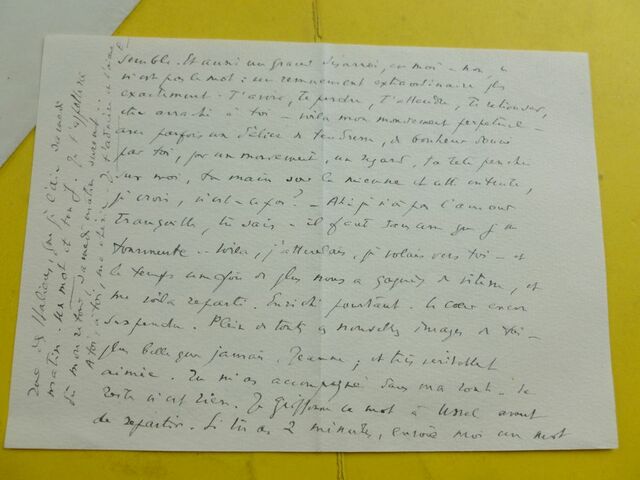 semble. Et aussi un grand désarroi, en moi - non, ce
n'est pas le mot : un remuement extraordinaire plus
exactement. T'avoir, te perdre, t'attendre, te retrouver,
être arraché à toi - voilà mon mouvement perpétuel -
avec parfois un délice de tendresse, de bonheur donné
par toi, par un mouvement, un regard, ta tête penchée
sur moi, ta main sur la mienne et cette entente,
je crois, n'est-ce pas ? - Ah ! je n'ai pas l'amour
tranquille, tu sais - il faut que je
tourmente - Voilà, j'atterrissais, je volais vers toi - et
le temps une fois de plus nous a gagnés de vitesse, et
me voilà reparti. Enrichi pourtant. Le cœur encore
suspendu. Plein de toutes ces nouvelles images de toi -
plus belle que jamais, Jeanne, et très
aimée. Tu m'as accompagné dans ma route - le
reste n'est rien. Je griffonne ce mot à Ussel avant
de repartir. Si tu as 2 minutes, envoie moi un mot
rue des Italiens, que j'aie samedi
matin un mot de toi. Je t'appellerai
dès mon retour samedi matin
A toi, à toi, ma chérie